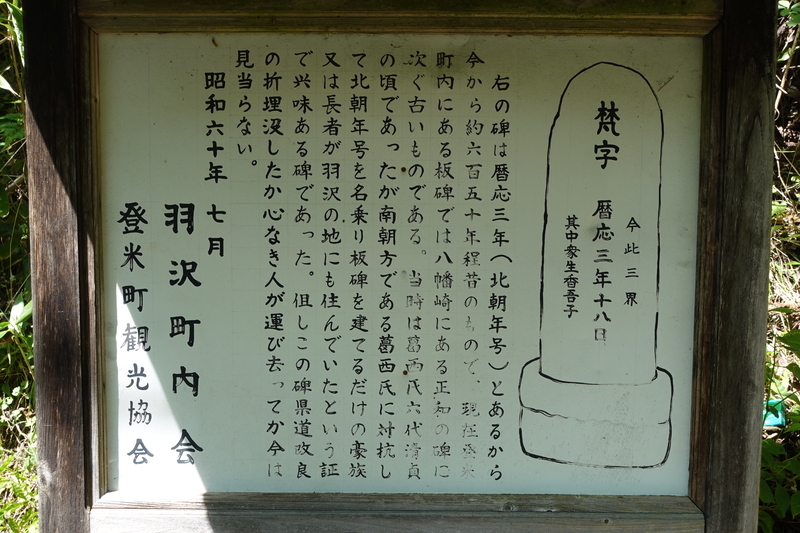 梵字
今此三界
暦応三年十八日
其中衆生香吾子
右の碑は暦応三年(北朝年号)とあるから
今から約六百五十年程昔のもので、現在登米
町内にある板碑では八幡崎にある正和の碑に
次ぐ古いものである。当時は葛西氏六代清貞
の頃であったが南朝方である葛西氏に対抗し
て北朝年号を名乗り板碑を建てるだけの豪族
又は長者が羽沢の地にも住んでいたという証
で興味ある碑であった。但しこの碑県道改良
の折埋没したか心なき人が運び去ってか今は
見当らない。
昭和六十年七月
羽沢町内会
登米町観光協会